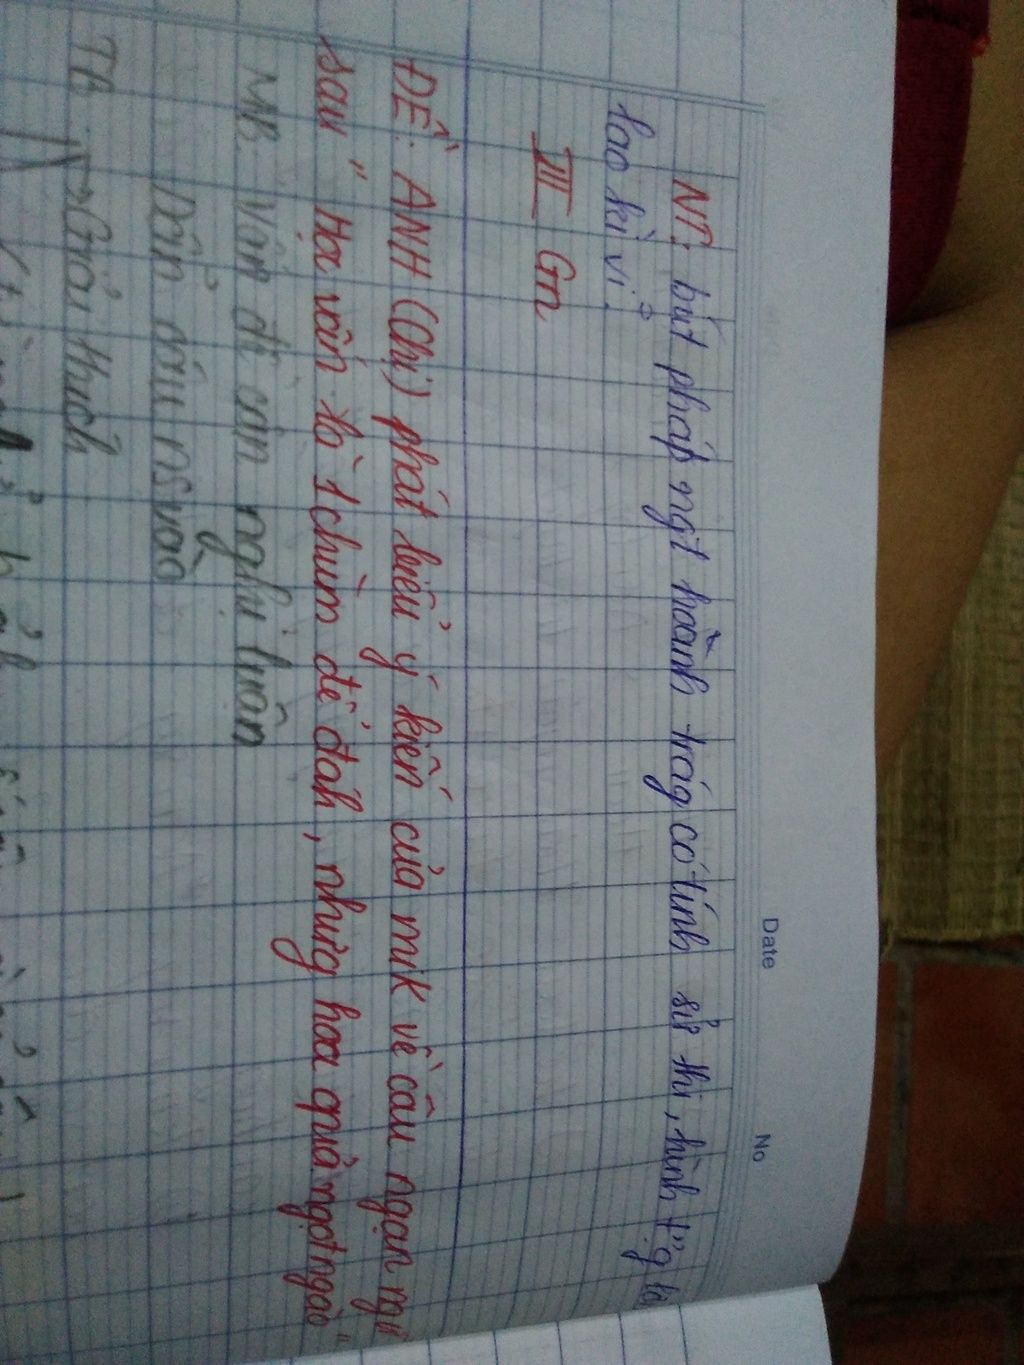 Date No
NT: bút pháp ngt hoành trág có tính sử thi, hình
lao kì vĩ.
III Gn
ĐỀ: ANH (Chị) phát biểu ý kiến của mik về câu ngạn ngữ
sau " Học vấn là 1 chùm dễ đắh, nhưng hoa quả ngọt ngào"
MB: Vấn đề cần nghị luận
Dẫn câu NS vào
TB: 1) Giải thích